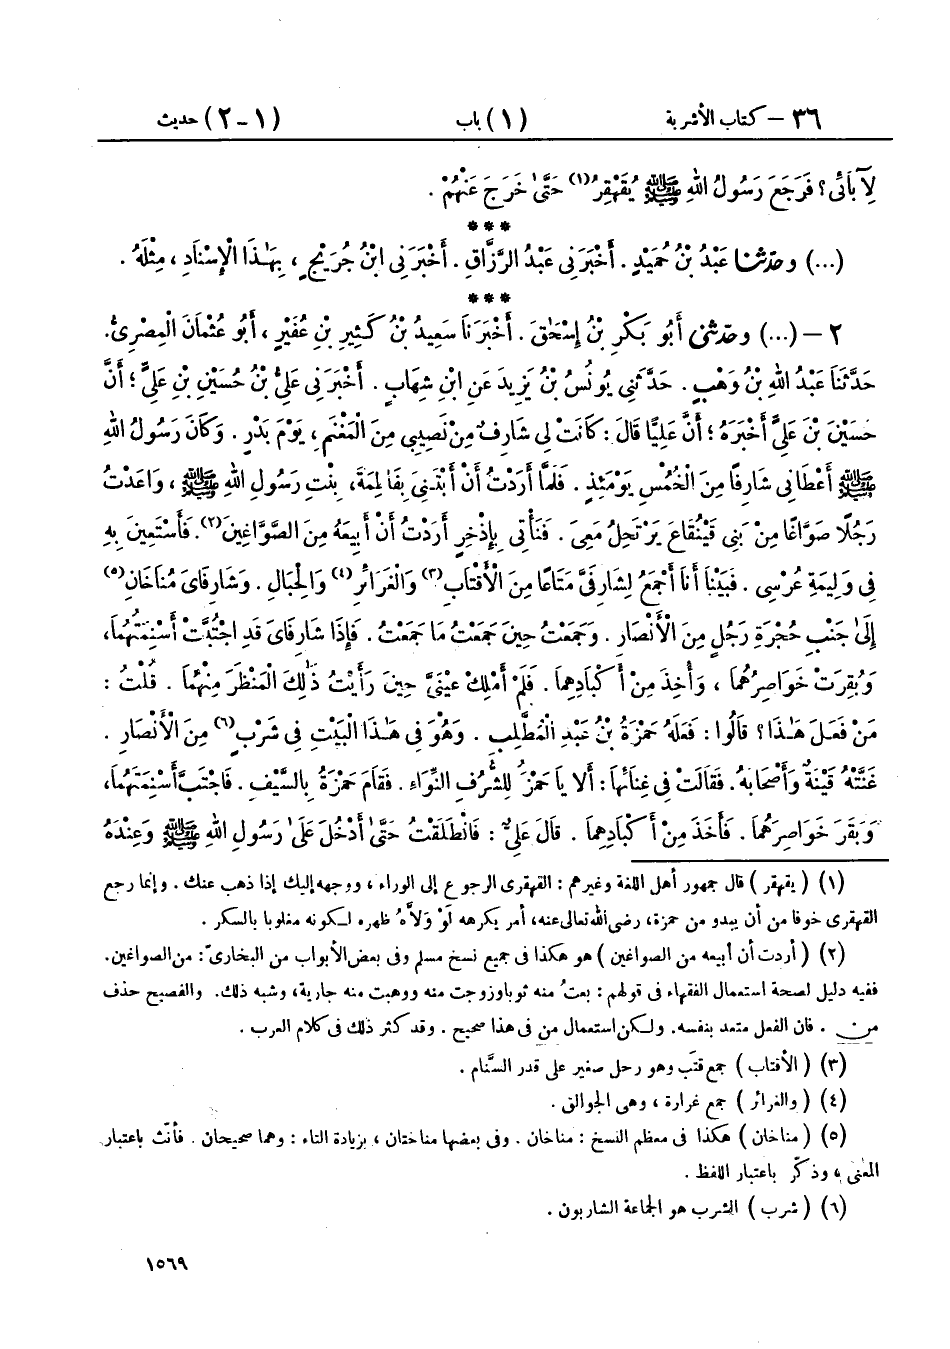 ٣٦ – كتاب الأشربة (١) باب (١ – ٢) حديث
لِآبَائِى؟ فَرَجَعَ رَسُولُ اللهِ ﷺ يُقَهْقِرُ(١) حَتَّىٰ خَرَجَ عَنْهُمْ .
***
(...) وحَدَّثَنَا عَبْدُ بْنُ حُمَيْدٍ . أَخْبَرَنِى عَبْدُ الرَّزَّاقِ . أَخْبَرَنِى ابْنُ جُرَيْجٍ ، بِهَـٰذَا الْإِسْنَادِ ، مِثْلَهُ .
***
٢ – (...) وحَدَّثَنِى أَبُو بَكْرِ بْنُ إِسْحَٰقَ . أَخْبَرَنَا سَعِيدُ بْنُ كَثِيرِ بْنِ عُفَيْرٍ ، أَبُو عُثْمَانَ الْمِصْرِىُّ.
حَدَّثَنَا عَبْدُ اللهِ بْنُ وَهْبٍ . حَدَّثَنِى يُونُسُ بْنُ يَزِيدَ عَنِ ابْنِ شِهَابٍ . أَخْبَرَنِى عَلِىُّ بْنُ حُسَيْنِ بْنِ عَلِىٍّ ؛ أَنَّ
حُسَيْنَ بْنَ عَلِىٍّ أَخْبَرَهُ ؛ أَنَّ عَلِيًّا قَالَ : كَانَتْ لِى شَارِفٌ مِنْ نَصِيبِى مِنَ الْمَغْنَمِ ، يَوْمَ بَدْرٍ . وَكَانَ رَسُولُ اللهِ
ﷺ أَعْطَانِى شَارِفًا مِنَ الْخُمُسِ يَوْمَئِذٍ . فَلَمَّا أَرَدْتُ أَنْ أَبْتَنِىَ بِفَاطِمَةَ، بِنْتِ رَسُولِ اللهِ ﷺ ، وَاعَدْتُ
رَجُلًا صَوَّاغًا مِنْ بَنِى قَيْنُقَاعَ يَرْتَحِلُ مَعِىَ . فَنَأْتِى بِإِذْخِرٍ أَرَدْتُ أَنْ أَبِيعَهُ مِنَ الصَّوَّاغِينَ(٢). فَأَسْتَعِينَ بِهِ
فِى وَلِيمَةِ عُرْسِى . فَبَيْنَا أَنَا أَجْمَعُ لِشَارِفَىَّ مَتَاعًا مِنَ الْأَقْتَابِ(٣) وَالْغَرَائِرِ(٤) وَالْحِبَالِ . وَشَارِفَاىَ مُنَاخَانِ(٥)
إِلَىٰ جَنْبِ حُجْرَةِ رَجُلٍ مِنَ الْأَنْصَارِ . وَجَمَعْتُ حِينَ جَمَعْتُ مَا جَمَعْتُ . فَإِذَا شَارِفَاىَ قَدِ اجْتُبَّتْ أَسْنِمَتُهُمَا،
وَبُقِرَتْ خَوَاصِرُهُمَا ، وَأُخِذَ مِنْ أَكْبَادِهِمَا . فَلَمْ أَمْلِكْ عَيْنَىَّ حِينَ رَأَيْتُ ذَٰلِكَ الْمَنْظَرَ مِنْهُمَا . قُلْتُ :
مَنْ فَعَلَ هَـٰذَا؟ قَالُوا : فَعَلَهُ حَمْزَةُ بْنُ عَبْدِ الْمُطَّلِبِ . وَهُوَ فِى هَـٰذَا الْبَيْتِ فِى شَرْبٍ(٦) مِنَ الْأَنْصَارِ .
غَنَّتْهُ قَيْنَةٌ وَأَصْحَابَهُ. فَقَالَتْ فِى غِنَائِهَا: أَلَا يَا حَمْزُ لِلشُّرُفِ النِّوَاءِ . فَقَامَ حَمْزَةُ بِالسَّيْفِ . فَاجْتَبَّ أَسْنِمَتَهُمَا،
وَبَقَرَ خَوَاصِرَهُمَا . فَأَخَذَ مِنْ أَكْبَادِهِمَا . قَالَ عَلِىٌّ : فَانْطَلَقْتُ حَتَّىٰ أَدْخُلَ عَلَىٰ رَسُولِ اللهِ ﷺ وَعِنْدَهُ
(١) ( يقهقر ) قال جمهور أهل اللغة وغيرهم : القهقرى الرجوع إلى الوراء ، ووجهه إليك إذا ذهب عنك . وإنما رجع
القهقرى خوفا من أن يبدو من حمزة، رضى الله تعالى عنه، أمر يكرهه لَوْ وَلَّاهُ ظهره لكونه مغلوبا بالسكر .
(٢) ( أردت أن أبيعه من الصواغين ) هو هكذا فى جميع نسخ مسلم وفى بعض الأبواب من البخارىّ: من الصواغين.
ففيه دليل لصحة استعمال الفقهاء فى قولهم : بعتُ منه ثوبا وزوجت منه ووهبت منه جارية، وشبه ذلك. والفصيح حذف
من . فان الفعل متعد بنفسه. ولكن استعمال من فى هذا صحيح . وقد كثر ذلك فى كلام العرب .
(٣) ( الأقتاب ) جمع قتَب وهو رحل صغير على قدر السَّنام .
(٤) ( والغرائر ) جمع غرارة ، وهى الجوالق .
(٥) ( مناخان ) هكذا فى معظم النسخ : مناخان . وفى بعضها مناختان ، بزيادة التاء : وهما صحيحان . فأنّث باعتبار
المعنى ، وذكّر باعتبار اللفظ .
(٦) ( شرب ) الشرب هو الجماعة الشاربون .
١٥٦٩